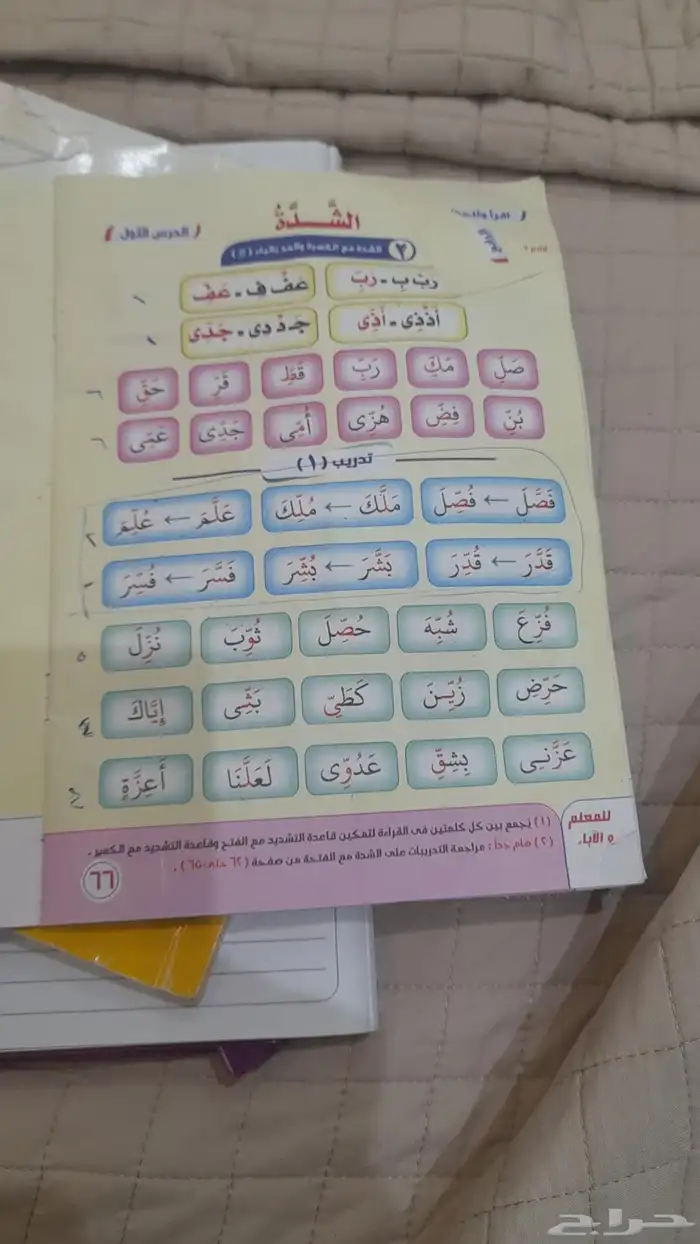 اقرأ
الشَّدَّةُ
الدرس الأول
٢ الشدة مع الكسرة والمد بالياء
رَبْ بِ - رَبِّ
عَفْ فِ - عَفِّ
أَذْذِى - أَذِّى
جَدْدِى - جَدِّى
صَلِّ مَكِّ رَبِّ قَطِّ قَرِّ حَقِّ
بُنِّ فِضِّ هُزِّى أُمِّى جَدِّى عَمِّى
تدريب (١)
فَضَّلَ ← فُضِّلَ مَلَّكَ ← مُلِّكَ عَلَّمَ ← عُلِّمَ
قَدَّرَ ← قُدِّرَ بَشَّرَ ← بُشِّرَ فَسَّرَ ← فُسِّرَ
فُزِّعَ شُبِّهَ حُصِّلَ ثُوِّبَ نُزِّلَ
حَرِّضِ زُيِّـنَ كَطَىِّ بَثِّى إِيَّاكَ
عَزَّنِـى بِشِقِّ عَدُوِّى لَعَلَّنَا أَعِزَّةٍ
للمعلم و الآباء
(١) يُجمع بين كل كلمتين فى القراءة لتمكين قاعدة التشديد مع الفتح وقاعدة التشديد مع الكسر.
(٢) هام جداً : مراجعة التدريبات على الشدة مع الفتحة من صفحة (٦٢ حتى ٦٥).
٦٦
حراج